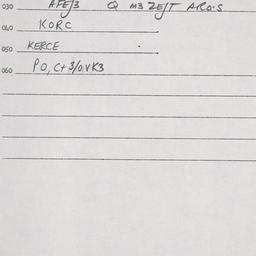 030 AFEJ3 Q M3 ZEJT ARO.S
040 KORC
050 KERCE
060 PO,C+3/OVK3